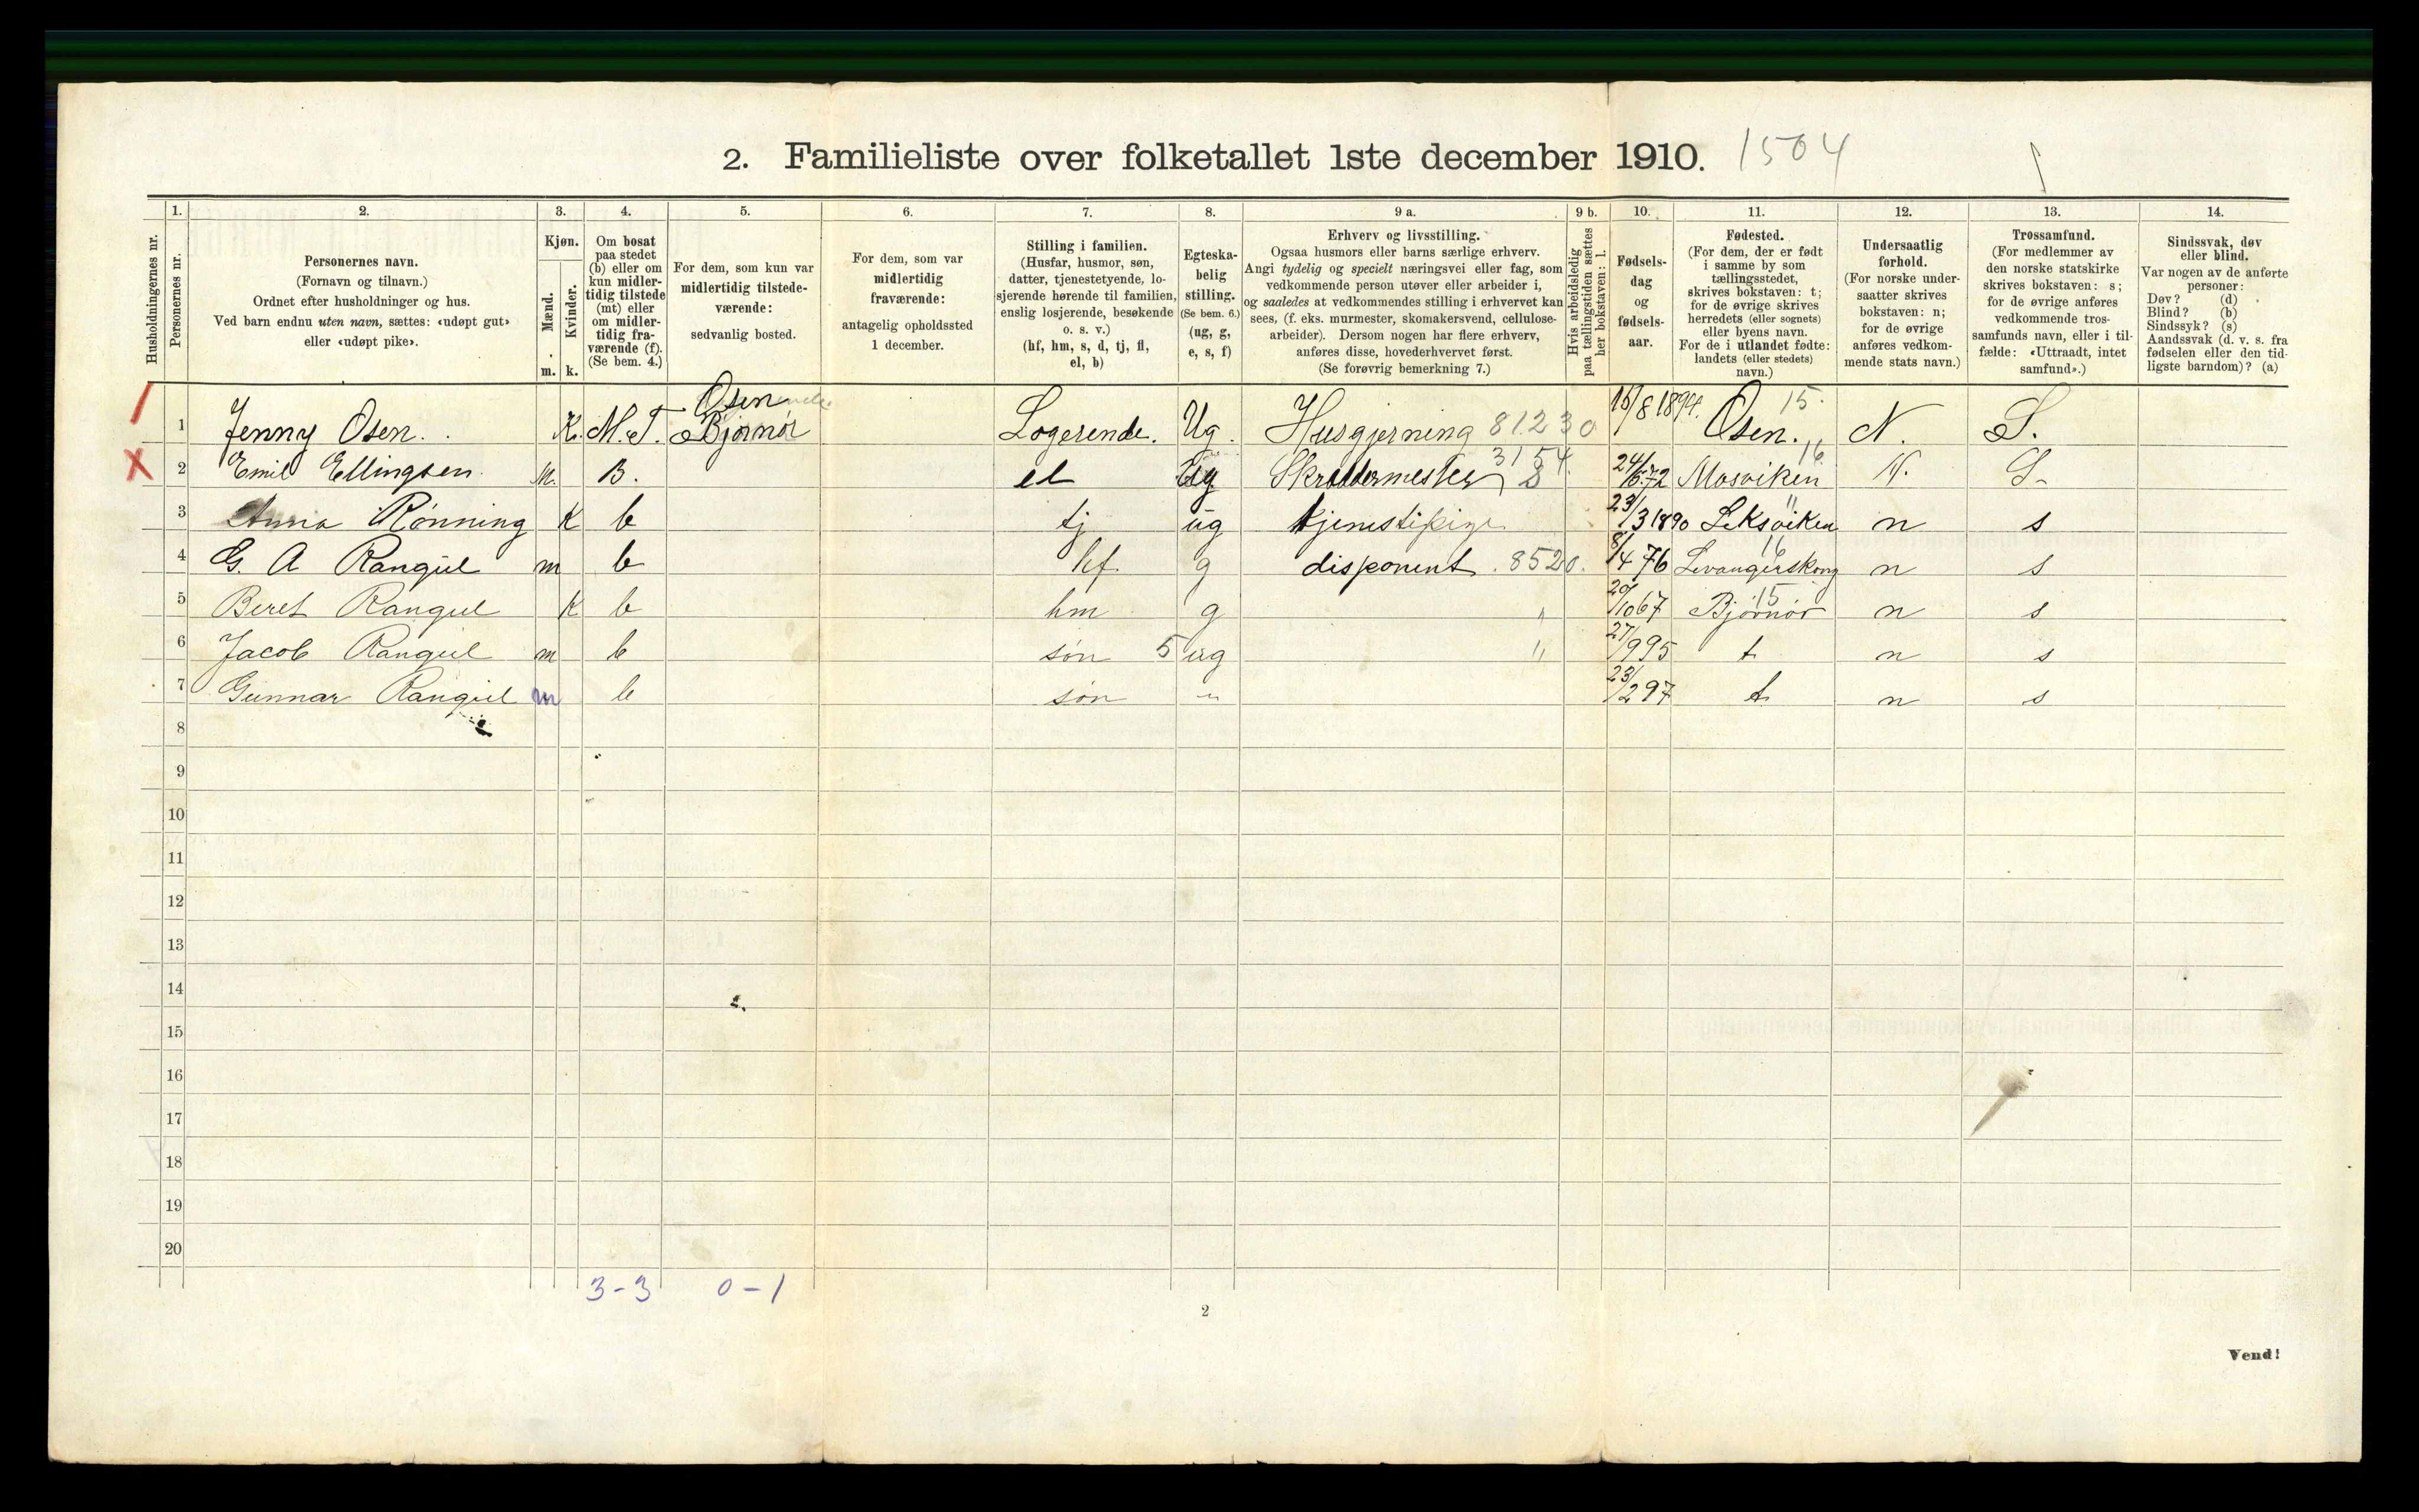 2. Familieliste over folketallet 1ste december 1910. 1504
1. 2. 3. 4. 5. 6. 7. 8. 9 a. 9 b. 10. 11. 12. 13. 14.
Husholdningernes nr.
Personernes nr.
Personernes navn.
(Fornavn og tilnavn.)
Ordnet efter husholdninger og hus.
Ved barn endnu uten navn, sættes: «udøpt gut»
eller «udøpt pike».
Kjøn.
Mænd.
Kvinder.
m. k.
Om bosat
paa stedet
(b) eller om
kun midler-
tidig tilstede
(mt) eller
om midler-
tidig fra-
værende (f).
(Se bem. 4.)
For dem, som kun var
midlertidig tilstede-
værende:
sedvanlig bosted.
For dem, som var
midlertidig
fraværende:
antagelig opholdssted
1 december.
Stilling i familien.
(Husfar, husmor, søn,
datter, tjenestetyende, lo-
sjerende hørende til familien,
enslig losjerende, besøkende
o. s. v.)
(hf, hm, s, d, tj, fl,
el, b)
Egteska-
belig
stilling.
(Se bem. 6.)
(ug, g,
e, s, f)
Erhverv og livsstilling.
Ogsaa husmors eller barns særlige erhverv.
Angi tydelig og specielt næringsvei eller fag, som
vedkommende person utøver eller arbeider i,
og saaledes at vedkommendes stilling i erhvervet kan
sees, (f. eks. murmester, skomakersvend, cellulose-
arbeider). Dersom nogen har flere erhverv,
anføres disse, hovederhvervet først.
(Se forøvrig bemerkning 7.)
Hvis arbeidsledig
paa tællingstiden sættes
her bokstaven: l.
Fødsels-
dag
og
fødsels-
aar.
Fødested.
(For dem, der er født
i samme by som
tællingsstedet,
skrives bokstaven: t;
for de øvrige skrives
herredets (eller sognets)
eller byens navn.
For de i utlandet fødte:
landets (eller stedets)
navn.)
Undersaatlig
forhold.
(For norske under-
saatter skrives
bokstaven: n;
for de øvrige
anføres vedkom-
mende stats navn.)
Trossamfund.
(For medlemmer av
den norske statskirke
skrives bokstaven: s;
for de øvrige anføres
vedkommende tros-
samfunds navn, eller i til-
fælde: «Uttraadt, intet
samfund».)
Sindssvak, døv
eller blind.
Var nogen av de anførte
personer:
Døv? (d)
Blind? (b)
Sindssyk? (s)
Aandssvak (d. v. s. fra
fødselen eller den tid-
ligste barndom)? (a)
1 Jenny Osen. K. M.T. Osen Bjørnør Logerende. Ug. Husgjerning 81230 /8 1894. Osen. 15. N. S.
2 Emil Ellingsen M. B. el Ug Skræddermester 3154. 24/6.72 Mosviken 16 N. S.
3 Anna Rønning K b tj ug tjenestepige 23/3 1890 Leksviken " n s
4 G. A Rangül m b hf. g disponent. 8520. 8/4 76 Levangerskong 16 n s
5 Beret Rangül K b hm g " 20/10 67 Bjørnør 15 n s
6 Jacob Rangül m b søn 5 ug " 27/9 95 t n s
7 Gunnar Rangül m b søn " 23/2 97 t n s
8
9
10
11
12
13
14
15
16
17
18
19
20
3-3 0-1
2
Vend!